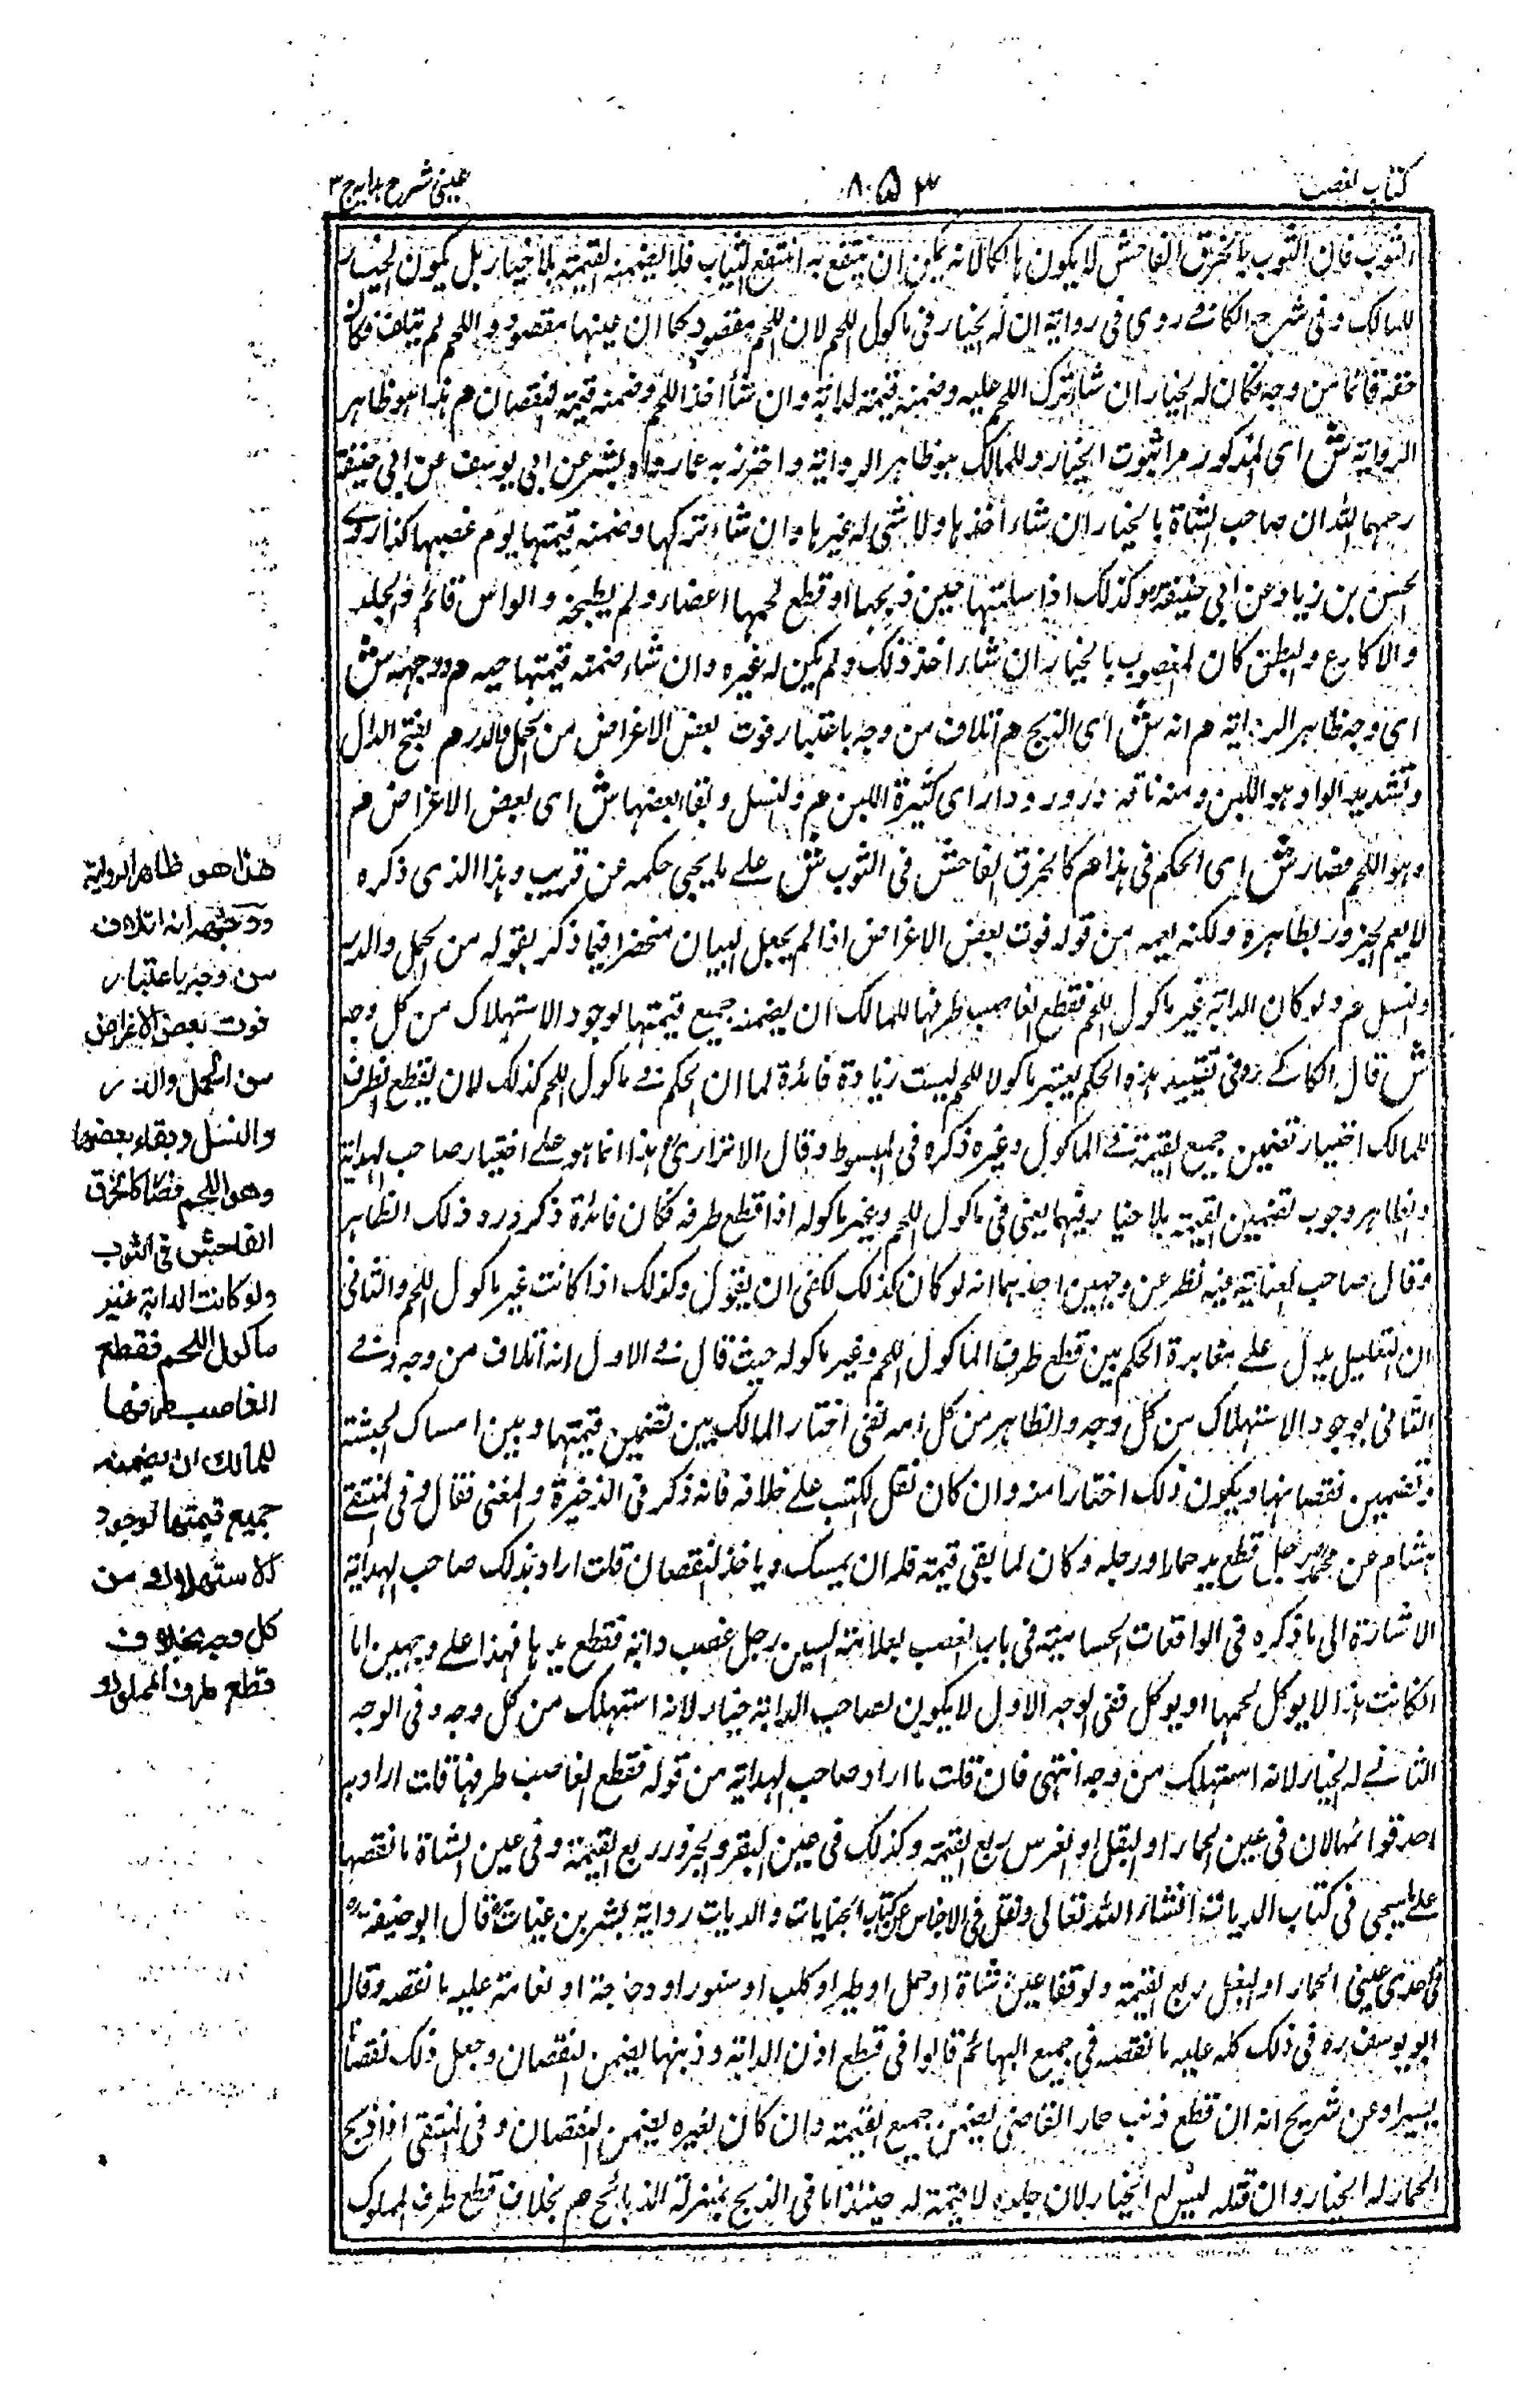 كتاب الغصب
٨٥٣
عینی شرح ہدایہ ج ٣
الثوب فان الثوب بالخرق الفاحش لا يكون هالكا لانه يمكن ان ينتفع به انتفع الثياب فلا يضمنه القيمة بلا خيار بل يكون الخيار
للمالك وفى شرح الكافے روى فى رواية ان له الخيار فى ماكول اللحم لان اللحم مقصود كما ان عينها مقصود واللحم لم يتلف فكان
حقه قائما من وجه فكان له الخيار ان شاء ترك اللحم عليه وضمنه قيمة الدابة وان شاء اخذ اللحم وضمنه قيمة النقصان م هذا هو ظاهر
الرواية ش اى المذكور من ثبوت الخيار للمالك هو ظاهر الرواية واحترز به عما رواه بشر عن ابى يوسف عن ابى حنيفة
رحمهما الله ان صاحب الشاة بالخيار ان شاء اخذها ولا شئ له غيرها وان شاء تركها وضمنه قيمتها يوم غصبها كذا روے
الحسن بن زياد عن ابى حنيفة وكذلك اذا سلخها حين ذبحها او قطع لحمها اعضاء ولم يطبخه والراس قائم والجلد
والاكارع والبطن كان المغصوب بالخيار ان شاء اخذ ذلك ولم يكن له غيره وان شاء ضمنه قيمتها حيه م ووجهه ش
اى وجه ظاهر الرواية م انه ش اى الذبح م اتلاف من وجه باعتبار فوت بعض الاغراض من الحمل والدر م بفتح الدال
وتشديد الراء وهو اللبن ومنه ناقة درور ودار اى كثيرة اللبن م والنسل وبقاء بعضها ش اى بعض الاغراض م
وهو اللحم فصار ش اى الحكم فى هذا م كالخرق الفاحش فى الثوب ش علے ما يجئ حكمه عن قريب وهذا الذى ذكره
لا يعم الجزور بظاهره ولكنه يعمه من قوله فوت بعض الاغراض اذا لم يجعل البيان منحصرا فيما ذكر بقوله من الحمل والدر
والنسل م ولو كان الدابة غير ماكول اللحم فقطع الغاصب طرفها للمالك ان يضمنه جميع قيمتها لوجود الاستهلاك من كل وجه
ش قال الكاكے وفى تقييد هذه الحكم بغير ماكول اللحم ليست زيادة فائدة لما ان الحكم فے ماكول اللحم كذلك لان بقطع الطرف
للمالك اختيار تضمين جميع القيمة فے الماكول وغيره ذكره فى المبسوط وقال الاترازى هذا انما هو علے اختيار صاحب الهداية
والظاهر وجوب تضمين القيمة بلا خيار فيهما يعنى فى ماكول اللحم وغير ماكوله اذا قطع طرفه فكان فائدة ذكره ورود ذلك الظاهر
وقال صاحب العناية فيه نظر عن وجهين احدهما انه لو كان كذلك لكفى ان يقول وكذلك اذا كانت غير ماكول اللحم والثانى
ان التعليل يدل علے مغايرة الحكم بين قطع طرف الماكول اللحم وغير ماكوله حيث قال فے الاول انه اتلاف من وجه وفے
الثانى لوجود الاستهلاك من كل وجه والظاهر من كلامه نفى اختيار المالك بين تضمين قيمتها وبين امساك الجثة
وتضمين نقصانها ويكون ذلك اختيارا منه وان كان نقل الكتب علے خلافه فانه ذكر فى الذخيرة والمغنى فقال وفى المنتقے
هشام عن محمد رجل قطع يد حمار او رجله وكان لما بقى قيمة فله ان يمسك وياخذ النقصان قلت اراد بذلك صاحب الهداية
الاشارة الى ما ذكره فى الواقعات الحسامية فى باب الغصب بعلامة السين رجل غصب دابة فقطع يدها فهذا علے وجهين اما
ان كانت هذا لا يوكل لحمها او يوكل ففى الوجه الاول لا يكون لصاحب الدابة خيار لانه استهلك من كل وجه وفى الوجه
الثانے له الخيار لانه استهلك من وجه انتهى فان قلت ما اراد صاحب الهداية من قوله فقطع الغاصب طرفها قلت اراد به
احد قوائمها لان فى عين الحمار او البغل او الفرس ربع القيمة وكذلك فى عين البقر والجزور ربع القيمة وفى عين الشاة ما نقصها
علے ما سيجئ فى كتاب الديات انشاء الله تعالى ونقل فى الاجناس عن كتاب الجنايات والديات رواية بشر بن غياث قال ابو حنيفة رہ
فى احدى عينى الحمار او البغل ربع القيمة ولو فقا عين شاة او حمل او طير او كلب او سنور او دجاجة او نعامة عليه ما نقصه وقال
ابو يوسف رہ فى ذلك كله عليه ما نقصه فى جميع البهائم قالوا فى قطع اذن الدابة وذنبها يضمن النقصان وجعل ذلك نقصانا
يسيرا وعن شريح انه ان قطع ذنب حمار القاضى يضمن جميع القيمة وان كان لغيره يضمن النقصان وفى المنتقى اذا ذبح
الحمار له الخيار وان قتله ليس له الخيار لان جلده لا قيمة له حينئذ اما فى الذبح بمنزلة الذبائح م بخلاف قطع طرف المملوك
هذا هو ظاهر الرواية
ووجهه انه اتلاف
من وجه باعتبار
فوت بعض الاغراض
من الحمل والدر
والنسل وبقاء بعضها
وهو اللحم فصار كالخرق
الفاحش فى الثوب
ولو كانت الدابة غير
ماكول اللحم فقطع
الغاصب طرفها
للمالك ان يضمنه
جميع قيمتها لوجود
الاستهلاك من
كل وجه بخلاف
قطع طرف المملوك